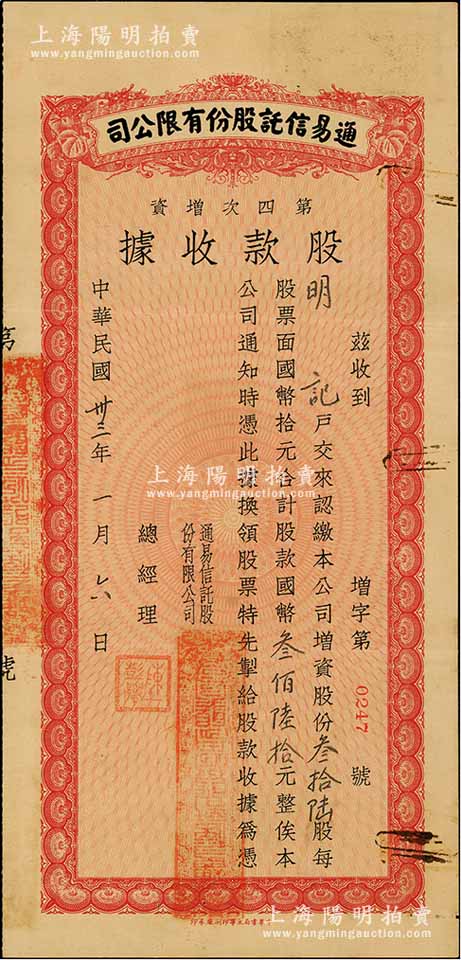 上海陽明拍賣
www.yangmingauction.com
通易信託股份有限公司
第四次增資
股款收據
增字第 0247 號
茲收到
明記戶交來認繳本公司增資股份叁拾陸股每
股票面國幣拾元合計股款國幣叁佰陸拾元整俟本
公司通知時憑此據換領股票特先掣給股款收據爲憑
通易信託股
份有限公司
總經理
中華民國卅三年一月 日
第
號
上海陽明拍賣
www.yangmingauction.com
上海陽明拍賣
www.yangmingauction.com